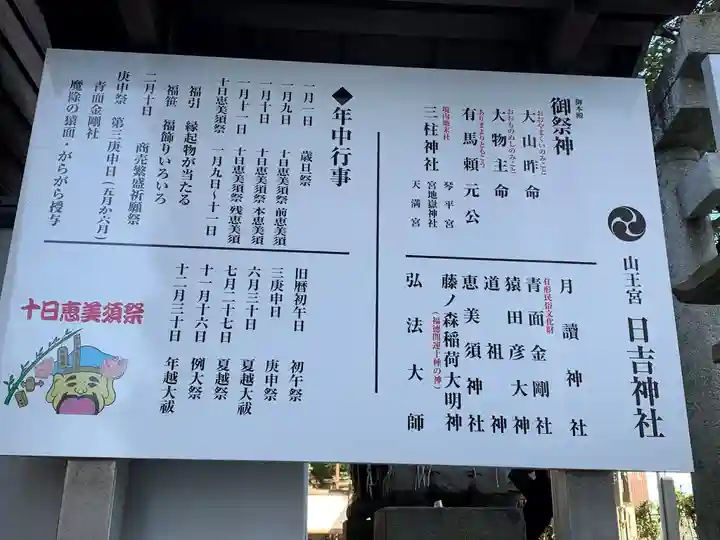 山王宮 日吉神社
御本殿
御祭神
おおやまくいのみこと
大山咋命
おおものぬしのみこと
大物主命
ありまよりもとこう
有馬頼元公
境内地末社
三柱神社
琴平宮
宮地嶽神社
天満宮
月讀神社
有形民俗文化財
青面金剛社
猿田彦大神
道祖神
恵美須神社
藤ノ森稲荷大明神(福徳開運十種の神)
弘法大師
◆年中行事
一月一日 歳旦祭
一月九日 十日恵美須祭 前恵美須
一月十日 十日恵美須祭 本恵美須
一月十一日 十日恵美須祭 残恵美須
十日恵美須祭 一月九日~十一日
福引 縁起物が当たる
福笹 福飾りいろいろ
二月十日 商売繁盛祈願祭
庚申祭 第三庚申日(五月か六月)
青面金剛社
魔除の猿面・がらがら授与
旧暦初午日 初午祭
三庚申日 庚申祭
六月三十日 夏越大祓
七月二十七日 夏越祭
十一月十六日 例大祭
十二月三十日 年越大祓
十日恵美須祭